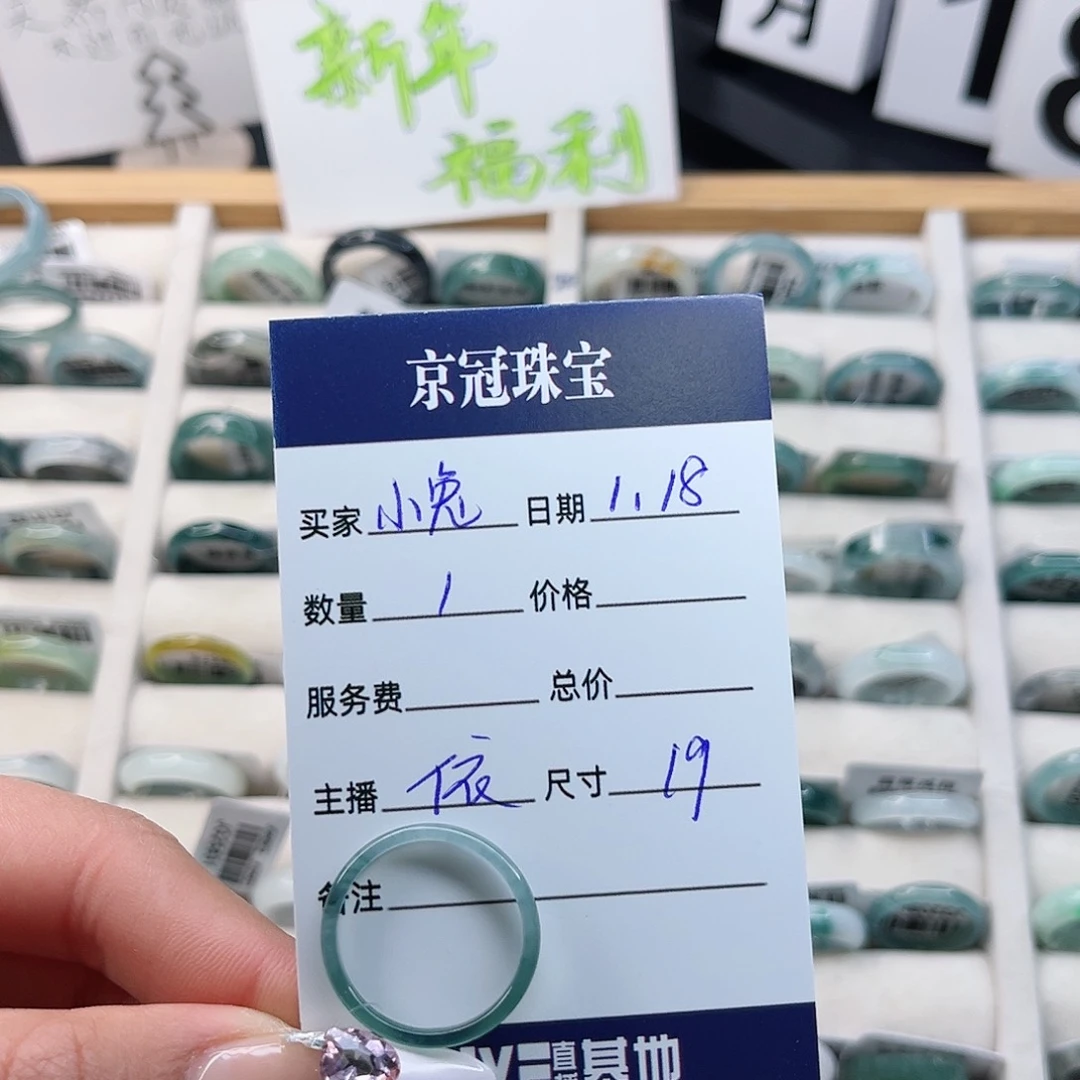 新年
福利
月
1
8
京冠珠宝
买家 小兔 日期 1.18
数量 1 价格
服务费 总价
主播 依 尺寸 19
备注
直播基地